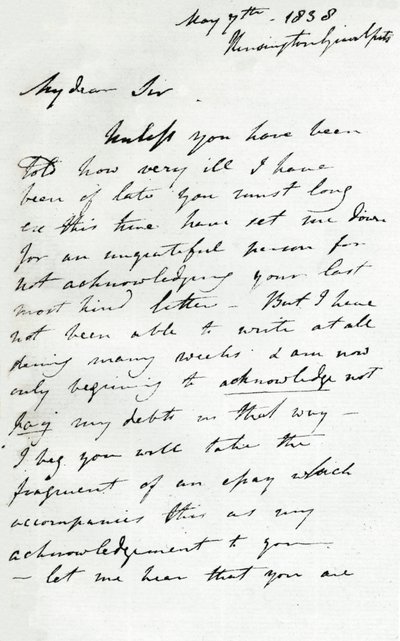 May 7th - 1838
Kensington Gravel pits
My dear Sir
Unless you have been
told how very ill I have
been of late you must long
ere this time have set me down
for an ungrateful person for
not acknowledging your last
most kind letter - But I have
not been able to write at all
during many weeks & am now
only beginning to acknowledge not
pay my debts in that way -
I beg you will take the
fragment of an essay which
accompanies this as my
acknowledgement to you -
- let me hear that you are